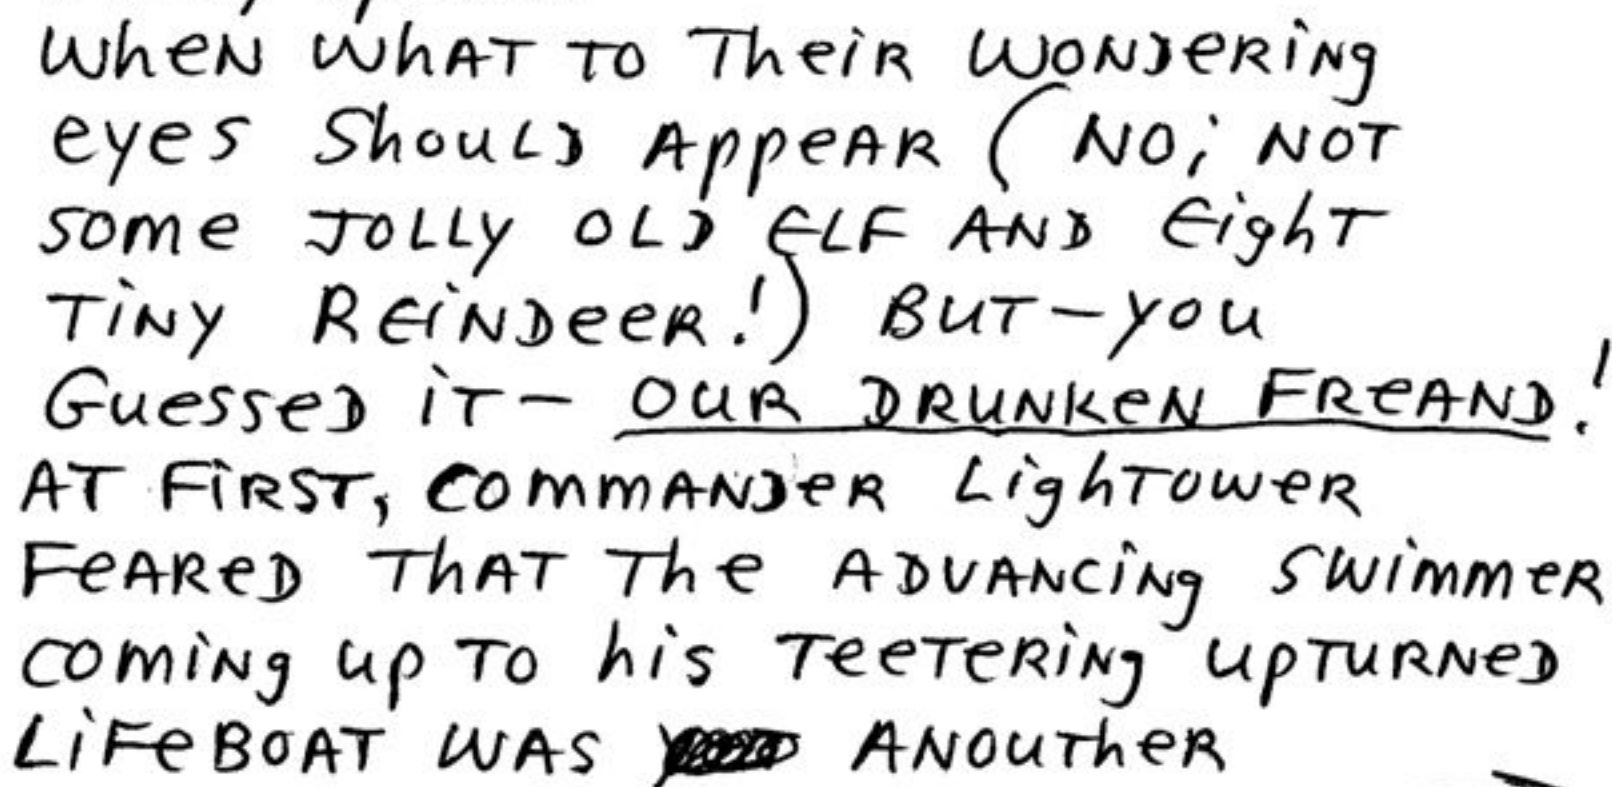 When What to Their Wondering
eyes Should Appear (No; Not
some Jolly Old Elf And Eight
Tiny Reindeer!) But—you
Guessed it— Our Drunken Freand!
At First, Commander Lightower
Feared That The Advancing Swimmer
coming up To his Teetering upturned
Lifeboat was Anouther